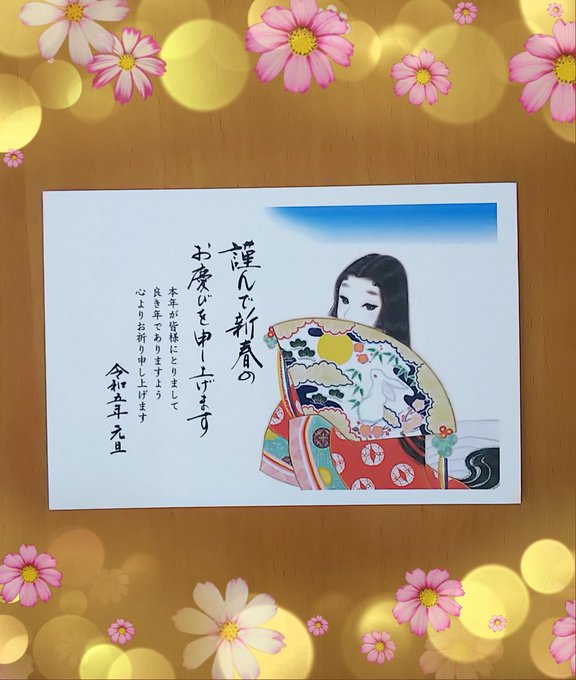 謹んで新春の
お慶びを申し上げます
本年が皆様にとりまして
良き年でありますよう
心よりお祈り申し上げます
令和五年 元旦